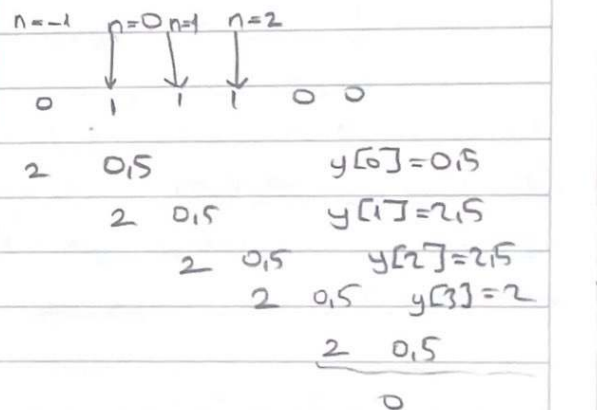 n=-1 n=0 n=1 n=2
0 1 1 1 0 0
2 0,5 y[0]=0,5
2 0,5 y[1]=2,5
2 0,5 y[2]=2,5
2 0,5 y[3]=2
2 0,5
0